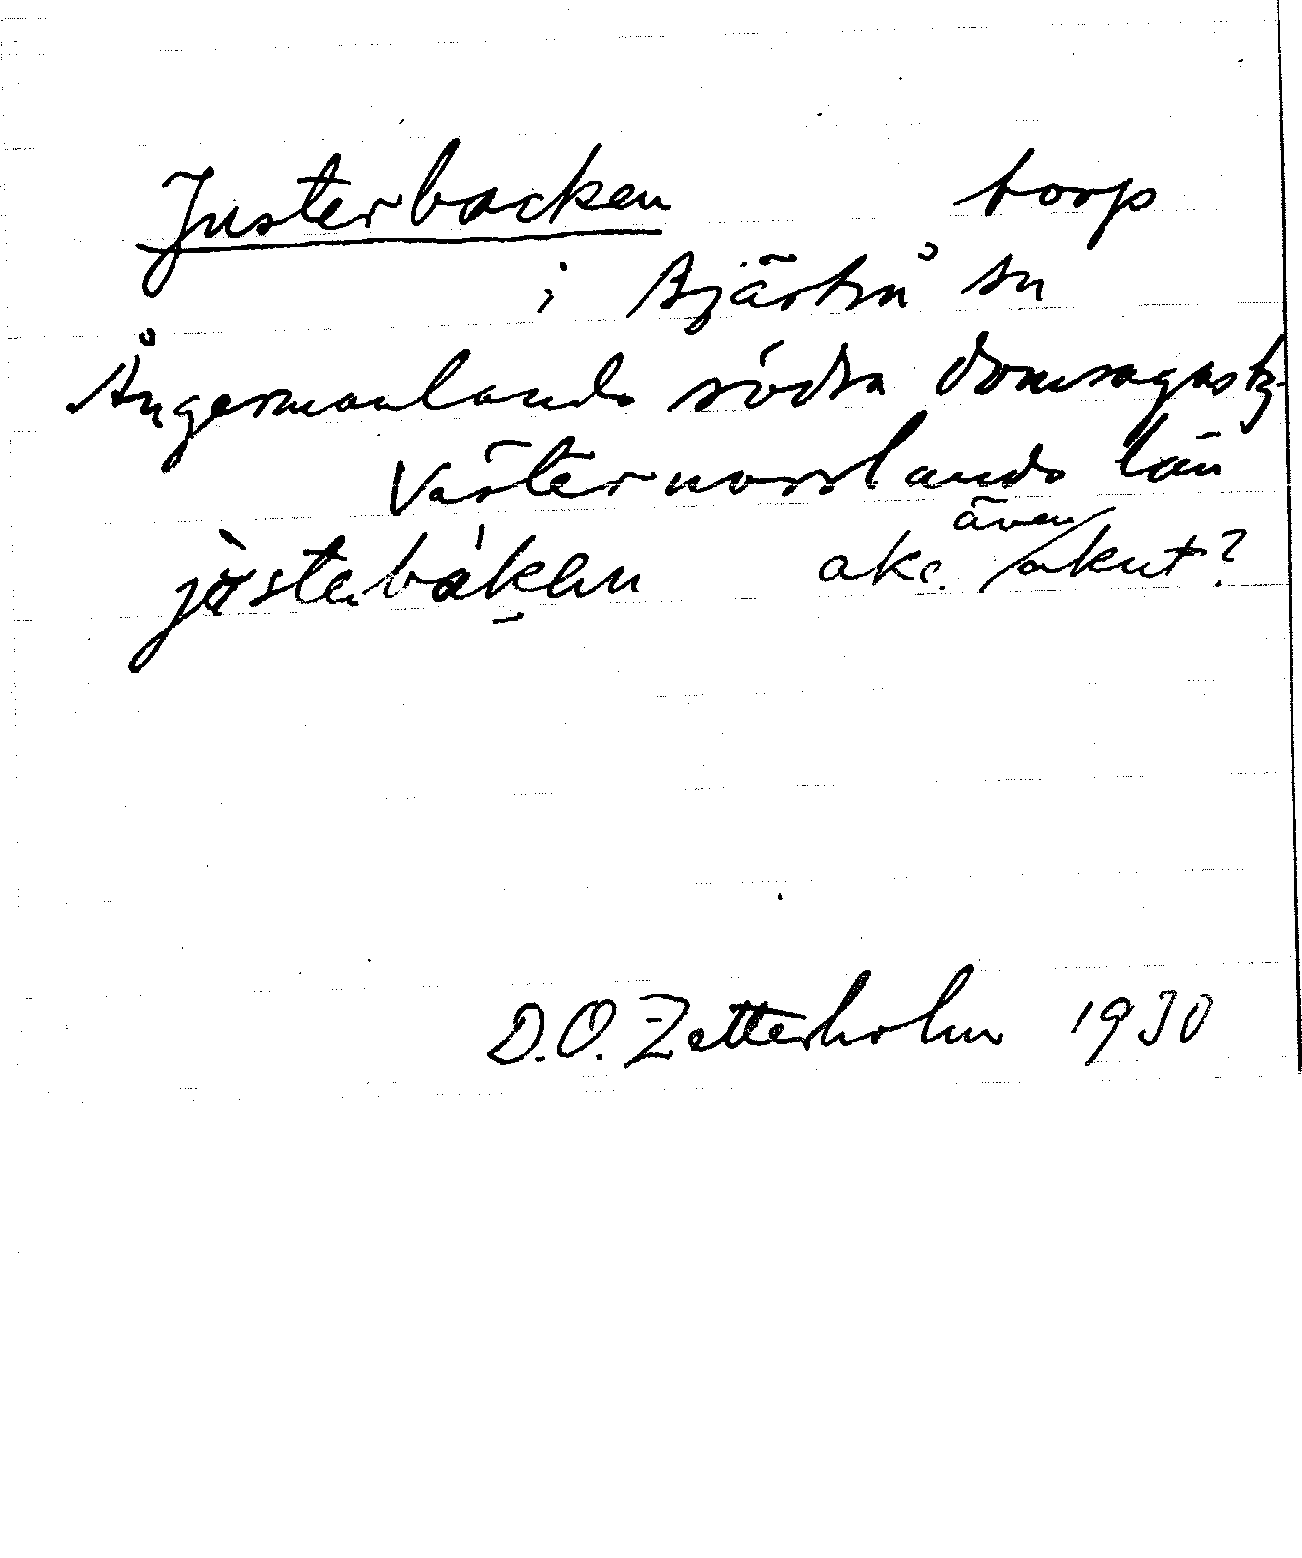 Justerbacken torp
i Bjärtrå sn
Ångermanlands södra domsagas tg
Västernorrlands län
jòstabákan akc. även akut?
D.O. Zetterholm 1930